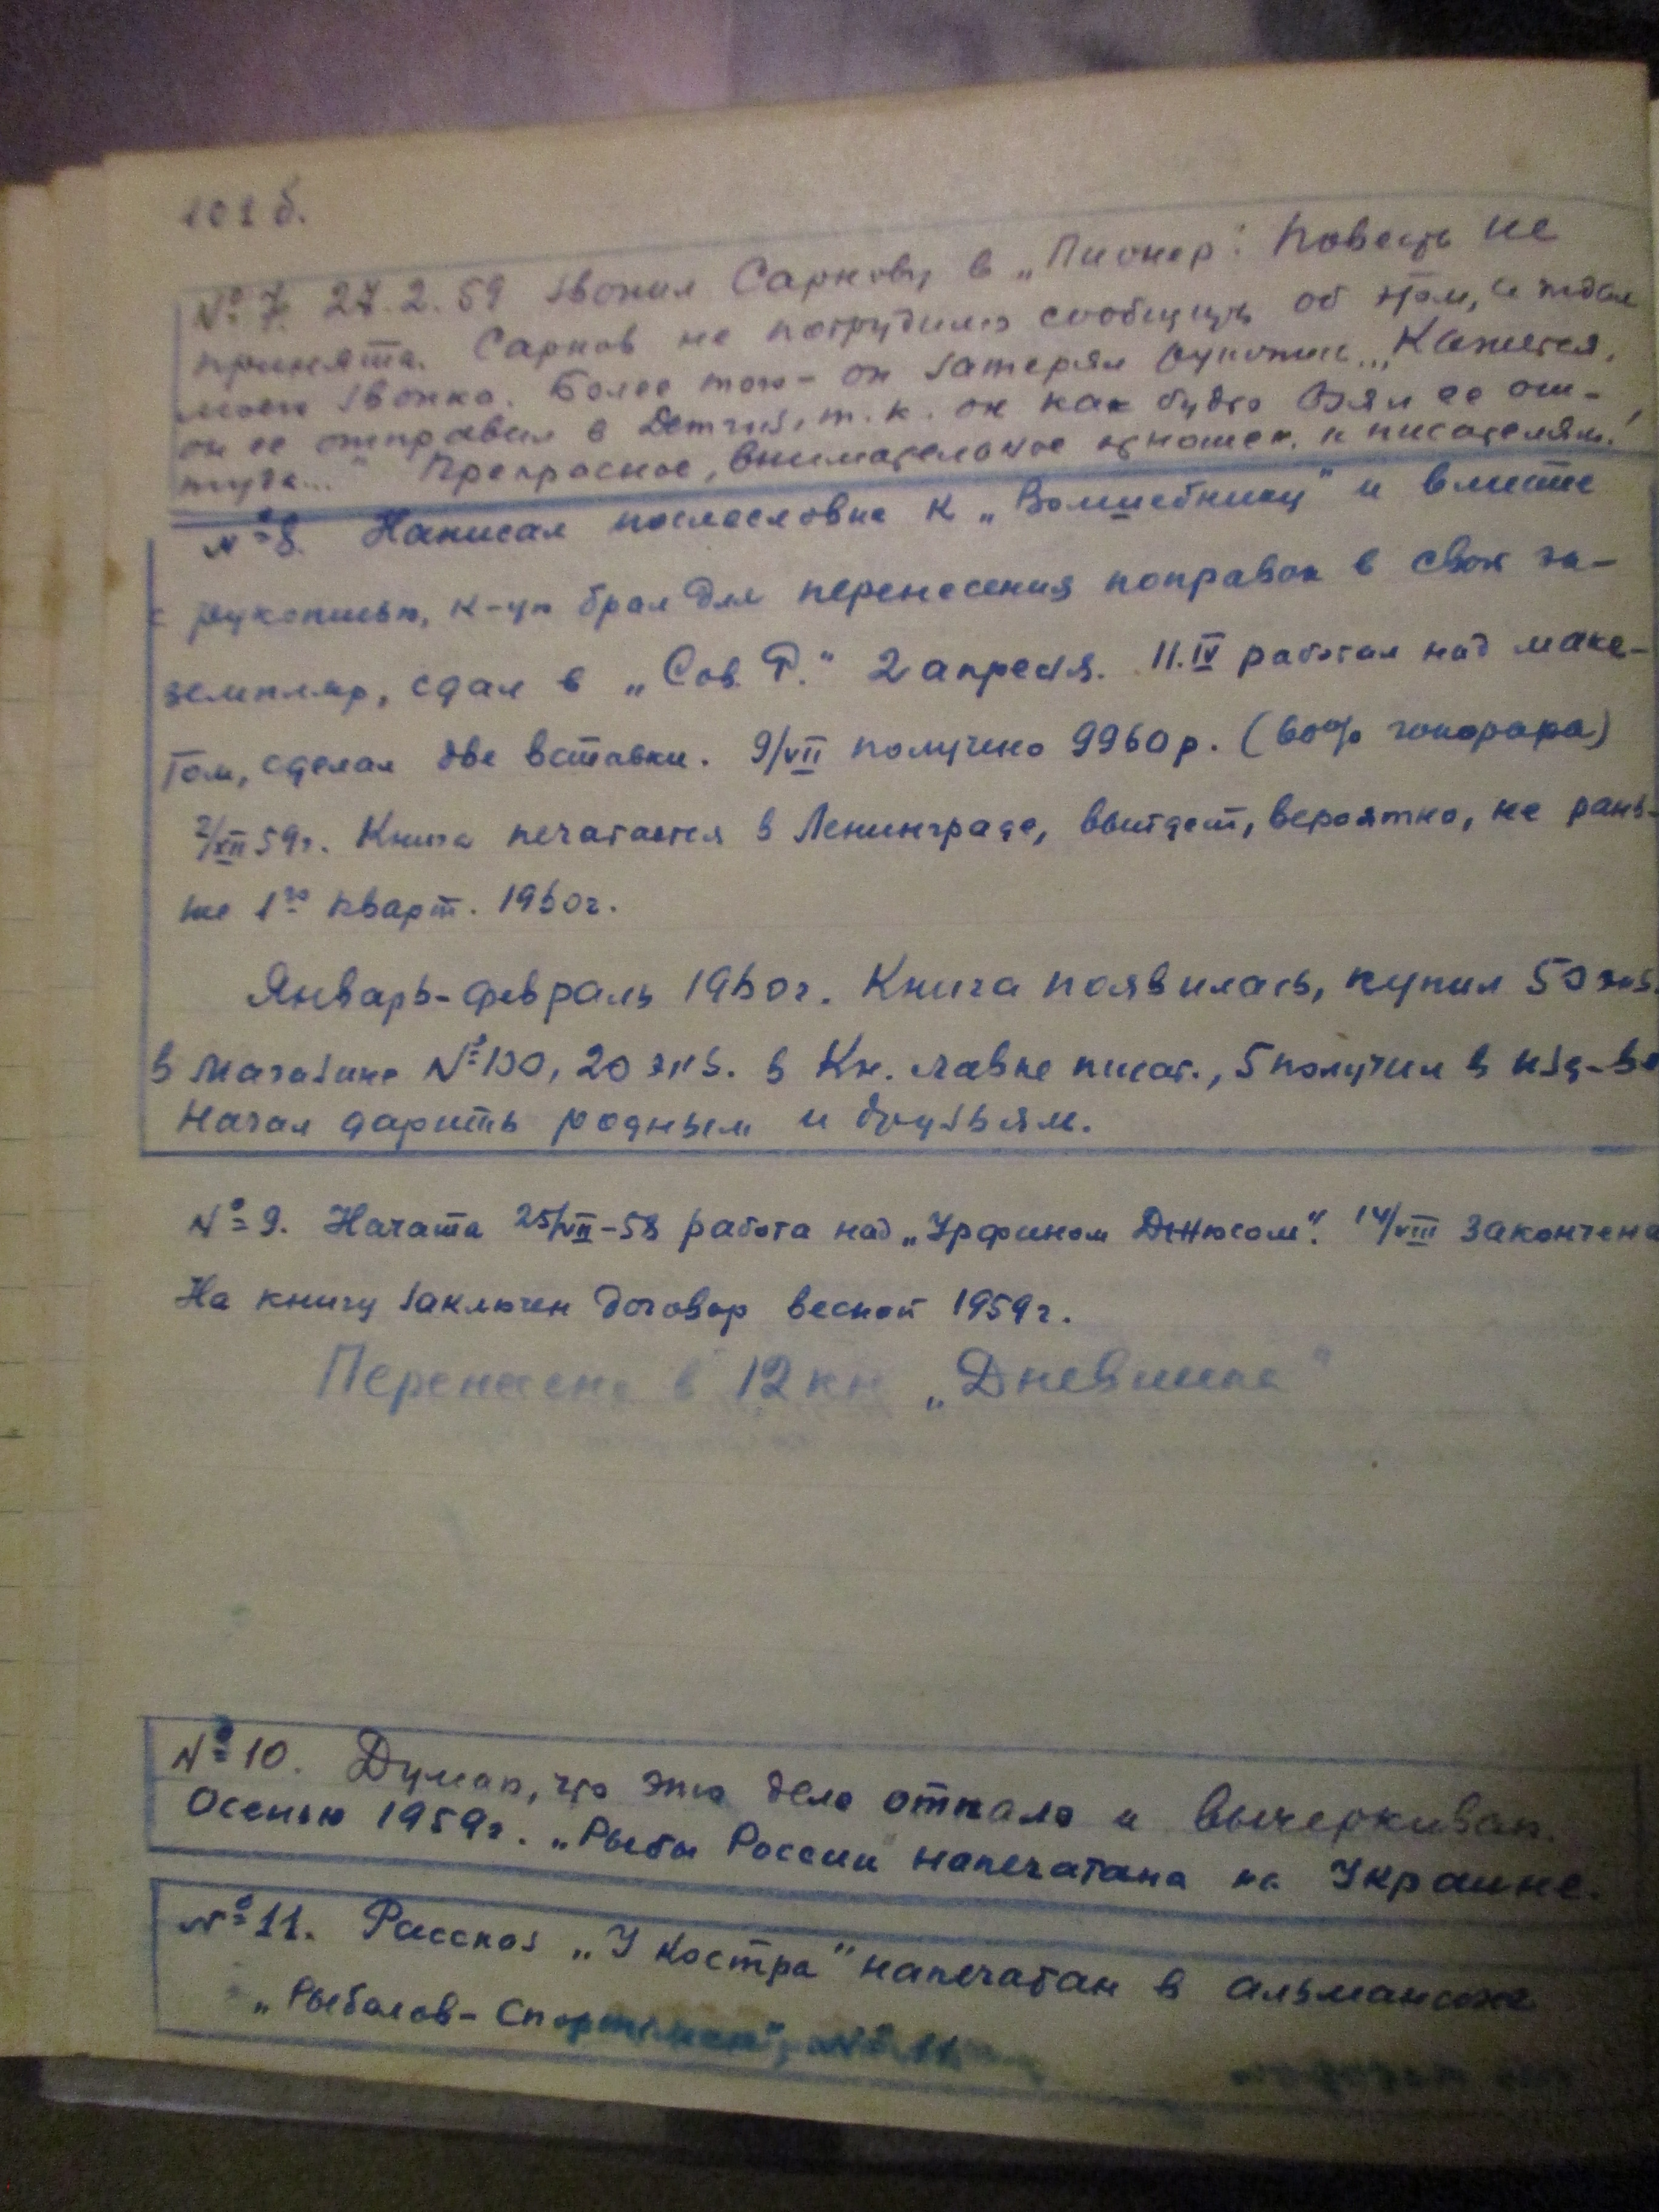 101 б.
№ 7. 27.2.59 звонил Сарнову в „Пионер“. Повесть не
принята. Сарнов не потрудился сообщить об этом, а ждал
моего звонка. Более того – он затерял рукопись... „Кажется,
он ее отправил в Детгиз, т. к. он как будто взял ее от-
туда...“ Прекрасное, внимательное отношен. к писателям!
№ 8. Написал послесловие к „Волшебнику“ и вместе
с рукописью, к-ую брал для перенесения поправок в свой эк-
земпляр, сдал в „Сов. Р.“ 2 апреля. 11.IV работал над маке-
том, сделал две вставки. 9/VII получено 9960 р. (60% гонорара)
2/XII 59 г. Книга печатается в Ленинграде, выйдет, вероятно, не рань-
ше 1го кварт. 1960 г.
Январь-февраль 1960 г. Книга появилась, купил 50 экз.
в магазине № 100, 20 экз. в Кн. лавке писат., 5 получил в изд-ве
Начал дарить родным и друзьям.
№ 9. Начата 25/VII–58 работа над „Урфином Джюсом“. 14/VIII закончена
На книгу заключен договор весной 1959 г.
Перенесено в 12 кн „Дневника“
№ 10. Думаю, что это дело отпало и вычеркиваю.
Осенью 1959 г. „Рыбы России“ напечатана на Украине.
№ 11. Рассказ „У костра“ напечатан в альманахе
„Рыболов-Спортсмен“, № 11